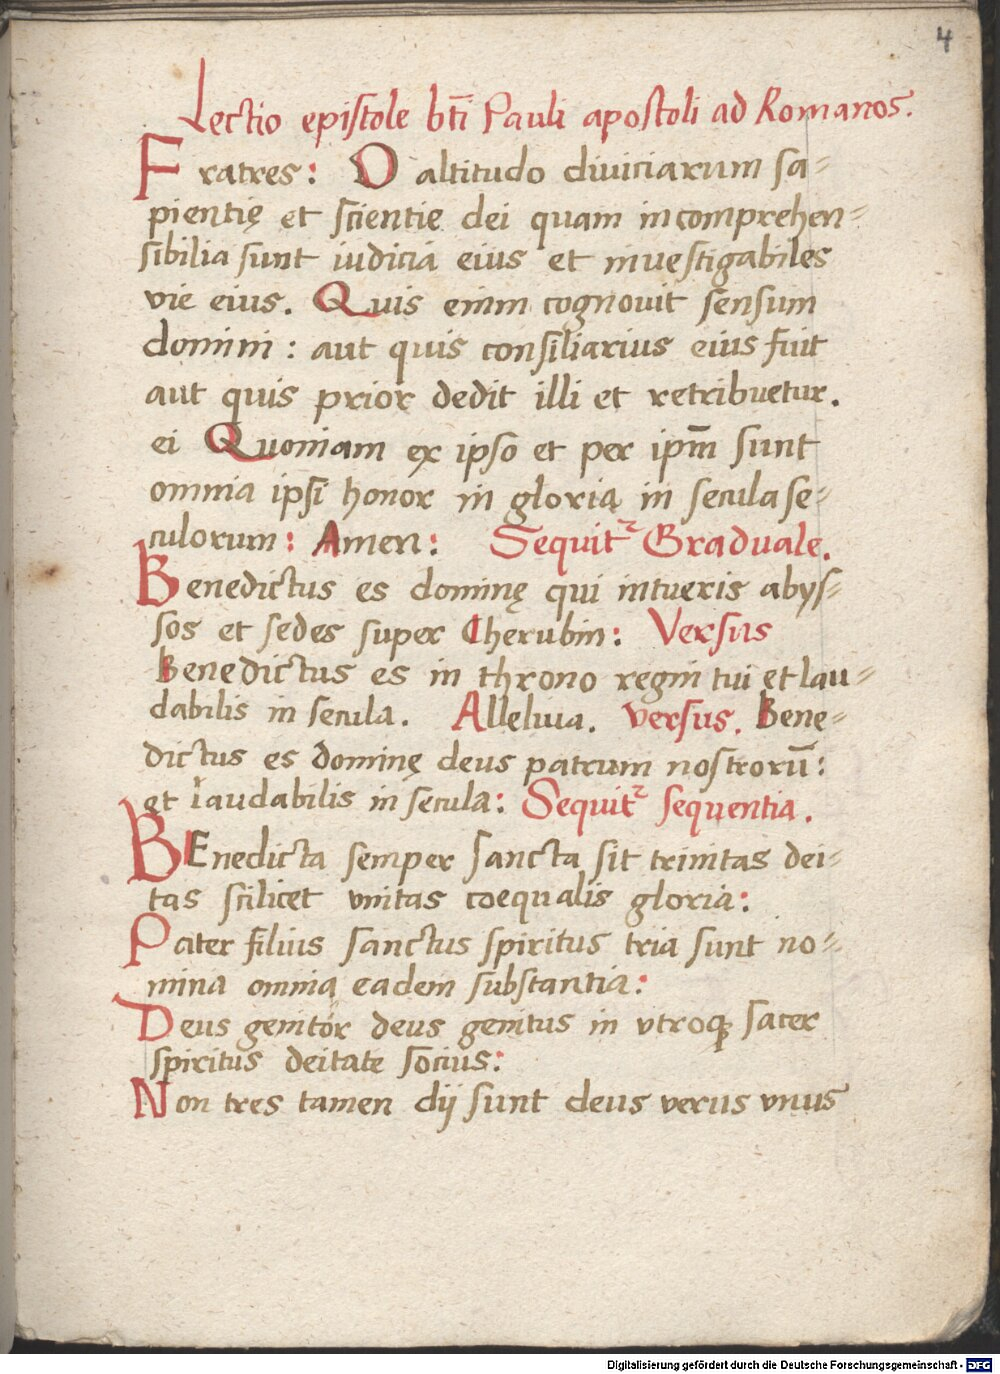 4
Lectio epistole bti̅ Pauli apostoli ad Romanos.
Fratres: O altitudo diviciarum sa=
pientię et scientię dei quam incomprehen=
sibilia sunt iudicia eius et investigabiles
vie eius. Quis enim cognovit sensum
domini: aut quis consiliarius eius fuit
aut quis prior dedit illi et retribuetur.
ei Quoniam ex ipso et per ipm̅ sunt
omnia ipsi honor in gloria in secula se=
culorum: Amen: Sequit᷑ Graduale.
Benedictus es dominę qui intueris abys=
sos et sedes super Cherubin: Versus
Benedictus es in throno regni tui et lau=
dabilis in secula. Alleluia. versus. Bene=
dictus es dominę deus patrum nostroru̅:
et laudabilis in secula: Sequit᷑ sequentia.
BEnedicta semper sancta sit trinitas dei=
tas scilicet vnitas coequalis gloria:
Pater filius sanctus spiritus tria sunt no=
mina omnia eadem substantia:
Deus genitor deus genitus in vtroqꝫ sacer
spiritus deitate socius:
Non tres tamen dij sunt deus verus vnus
Digitalisierung gefördert durch die Deutsche Forschungsgemeinschaft - DFG